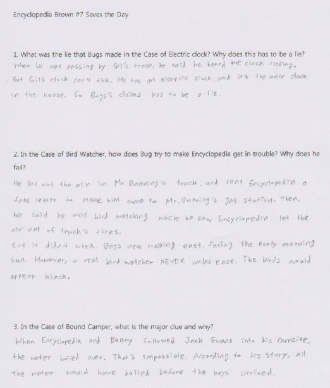 Encyclopedia Brown #7 Saves the Day
1. What was the lie that Bugs made in the Case of Electric clock? Why does this has to be a lie?
When he was passing by Gil's house, he said he heard the clock ticking.
But Gil's clock can't tick. He has an electric clock, and it's the only clock
in the house. So Bugs's claims has to be a lie.
2. In the Case of Bird Watcher, how does Bug try to make Encyclopedia get in trouble? Why does he
fail?
He let out the air in Mr. truck, and sent Encyclopedia a
fake letter to make him come to Mr. gas station. Then
he said he was bird watching while he saw Encyclopedia let the
air out of truck's tires.
But it didn't work. Bugs was walking east, facing the early morning
sun. However, a real bird watcher NEVER walks east. The birds would
appear black.
3. In the Case of Bound Camper, what is the major clue and why?
When Encyclopedia and Benny followed Jack into his campsite,
the water boiled over. That's impossible. According to his story, all
the water would have boiled before the boys arrived.